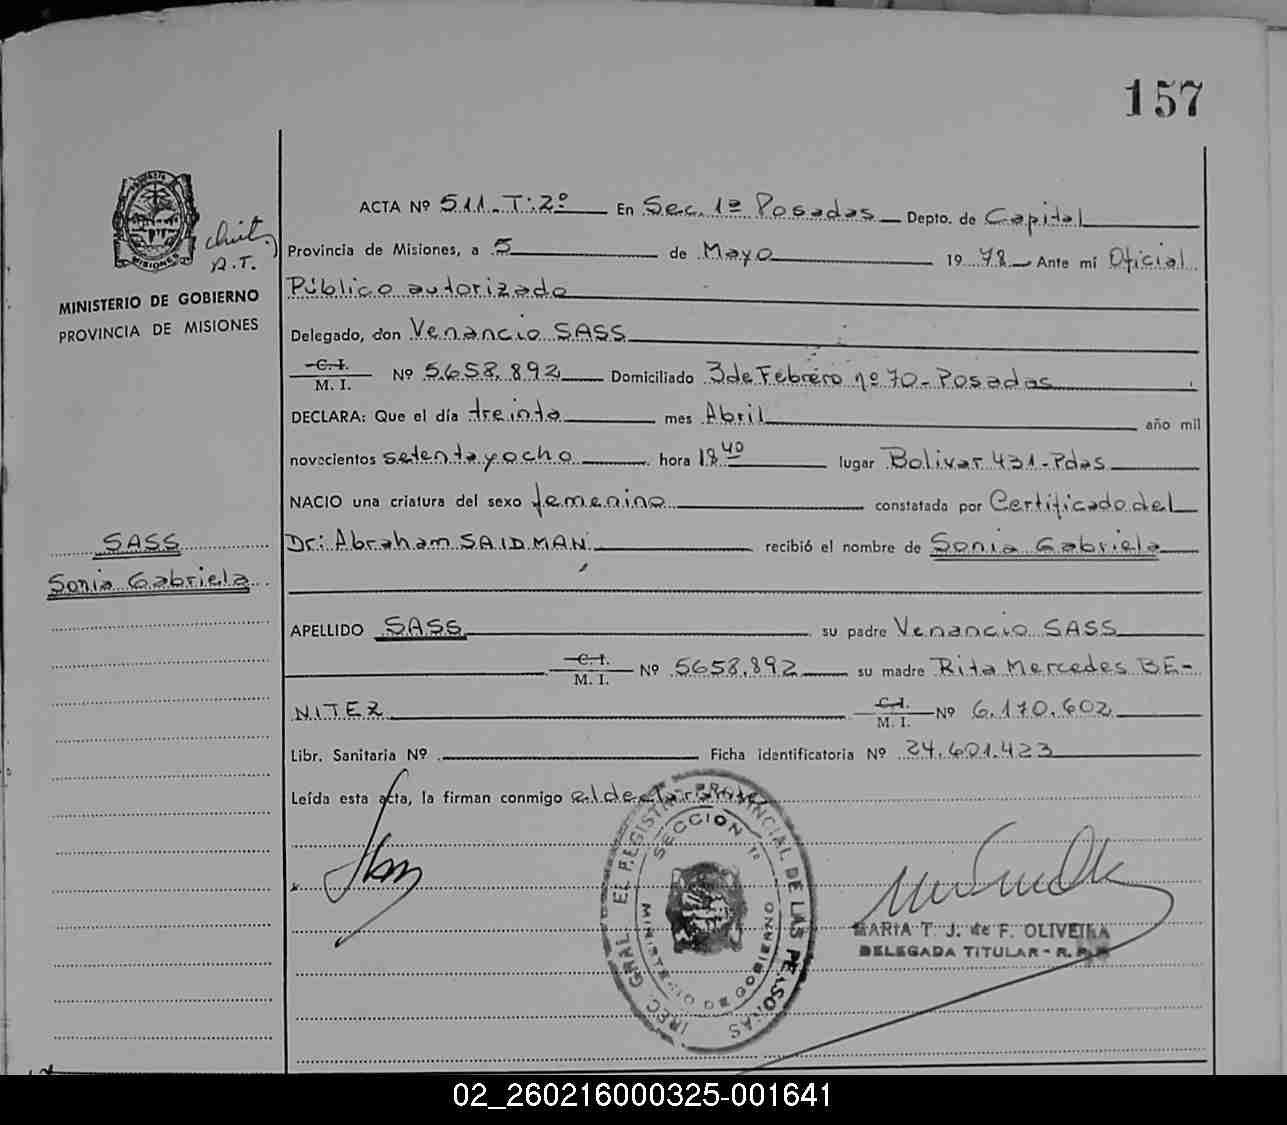 157
ACTA Nº 511.T:2º En Sec. 1ª Posadas Depto. de Capital
Provincia de Misiones, a 5 de Mayo 19 78 Ante mí Oficial
A.T.
MINISTERIO DE GOBIERNO
PROVINCIA DE MISIONES
Público autorizado
Delegado, don Venancio SASS
C.I.
M. I. Nº 5.658.892 Domiciliado 3 de Febrero nº 70-Posadas
DECLARA: Que el día treinta mes Abril año mil
novecientos setenta y ocho hora 18 40 lugar Bolivar 431-Pdas
NACIO una criatura del sexo femenino constatada por Certificado del
SASS
Dr: Abraham SAIDMAN recibió el nombre de Sonia Gabriela
Sonia Gabriela
APELLIDO SASS su padre Venancio SASS
C.I.
M. I. Nº 5658.892 su madre Rita Mercedes BE-
NITEZ C.I.
M. I. Nº 6.170.602
Libr. Sanitaria Nº Ficha identificatoria Nº 24.601.423
Leída esta acta, la firman conmigo el declarante
IREC. GRAL. EL REGISTR PROVINCIAL DE LAS PERSONAS
SECCION 1ª
MINISTERIO DE GOBIERNO
MARIA T. J. de F. OLIVEIRA
DELEGADA TITULAR - R. P. P.
02_260216000325-001641